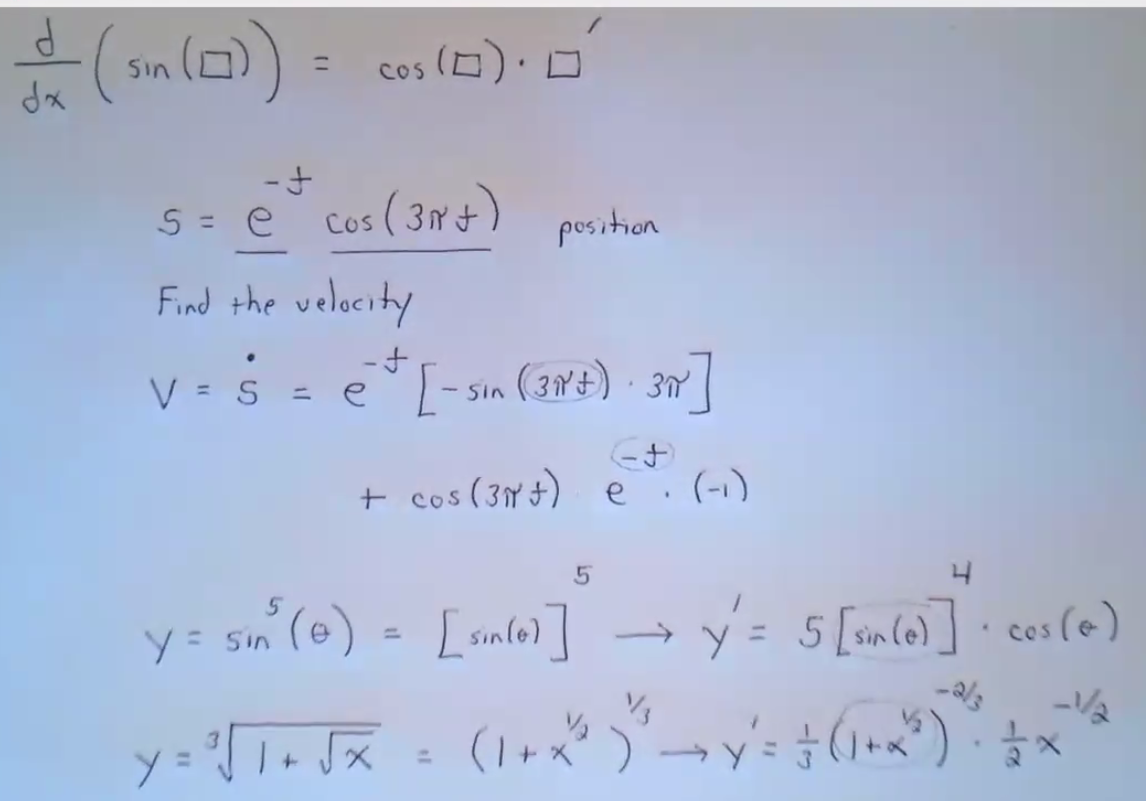 d/dx (sin(□)) = cos(□) · □′
s = e^-t cos(3πt) position
Find the velocity
v = ṡ = e^-t [-sin(3πt) · 3π]
+ cos(3πt) · e^-t · (-1)
y = sin^5(θ) = [sin(θ)]^5 → y′ = 5[sin(θ)]^4 · cos(θ)
y = ∛(1 + √x) = (1 + x^1/2)^1/3 → y′ = 1/3 (1 + x^1/2)^-2/3 · 1/2 x^-1/2